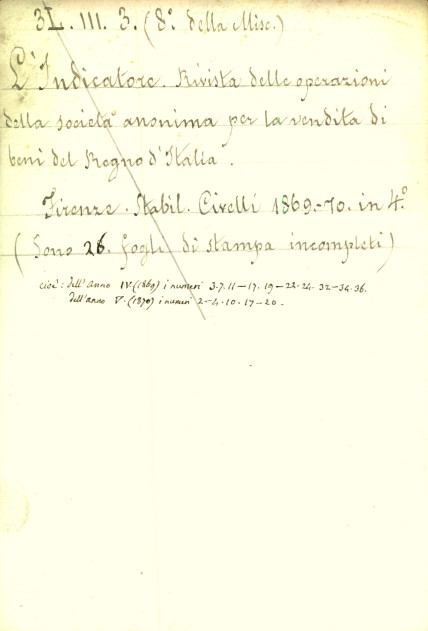 3L. III. 3. (8º. della Misc.)
L'Indicatore. Rivista delle operazioni
della società anonima per la vendita di
beni del Regno d'Italia.
Firenze. Stabil. Civelli 1869-70. in 4º
(Sono 26. fogli di stampa incompleti)
cioè: dell'anno IV. (1869) i numeri 3.7.11-17.19-22.24.32-34.36.
dell'anno V. (1870) i numeri 2-4.10.17-20.